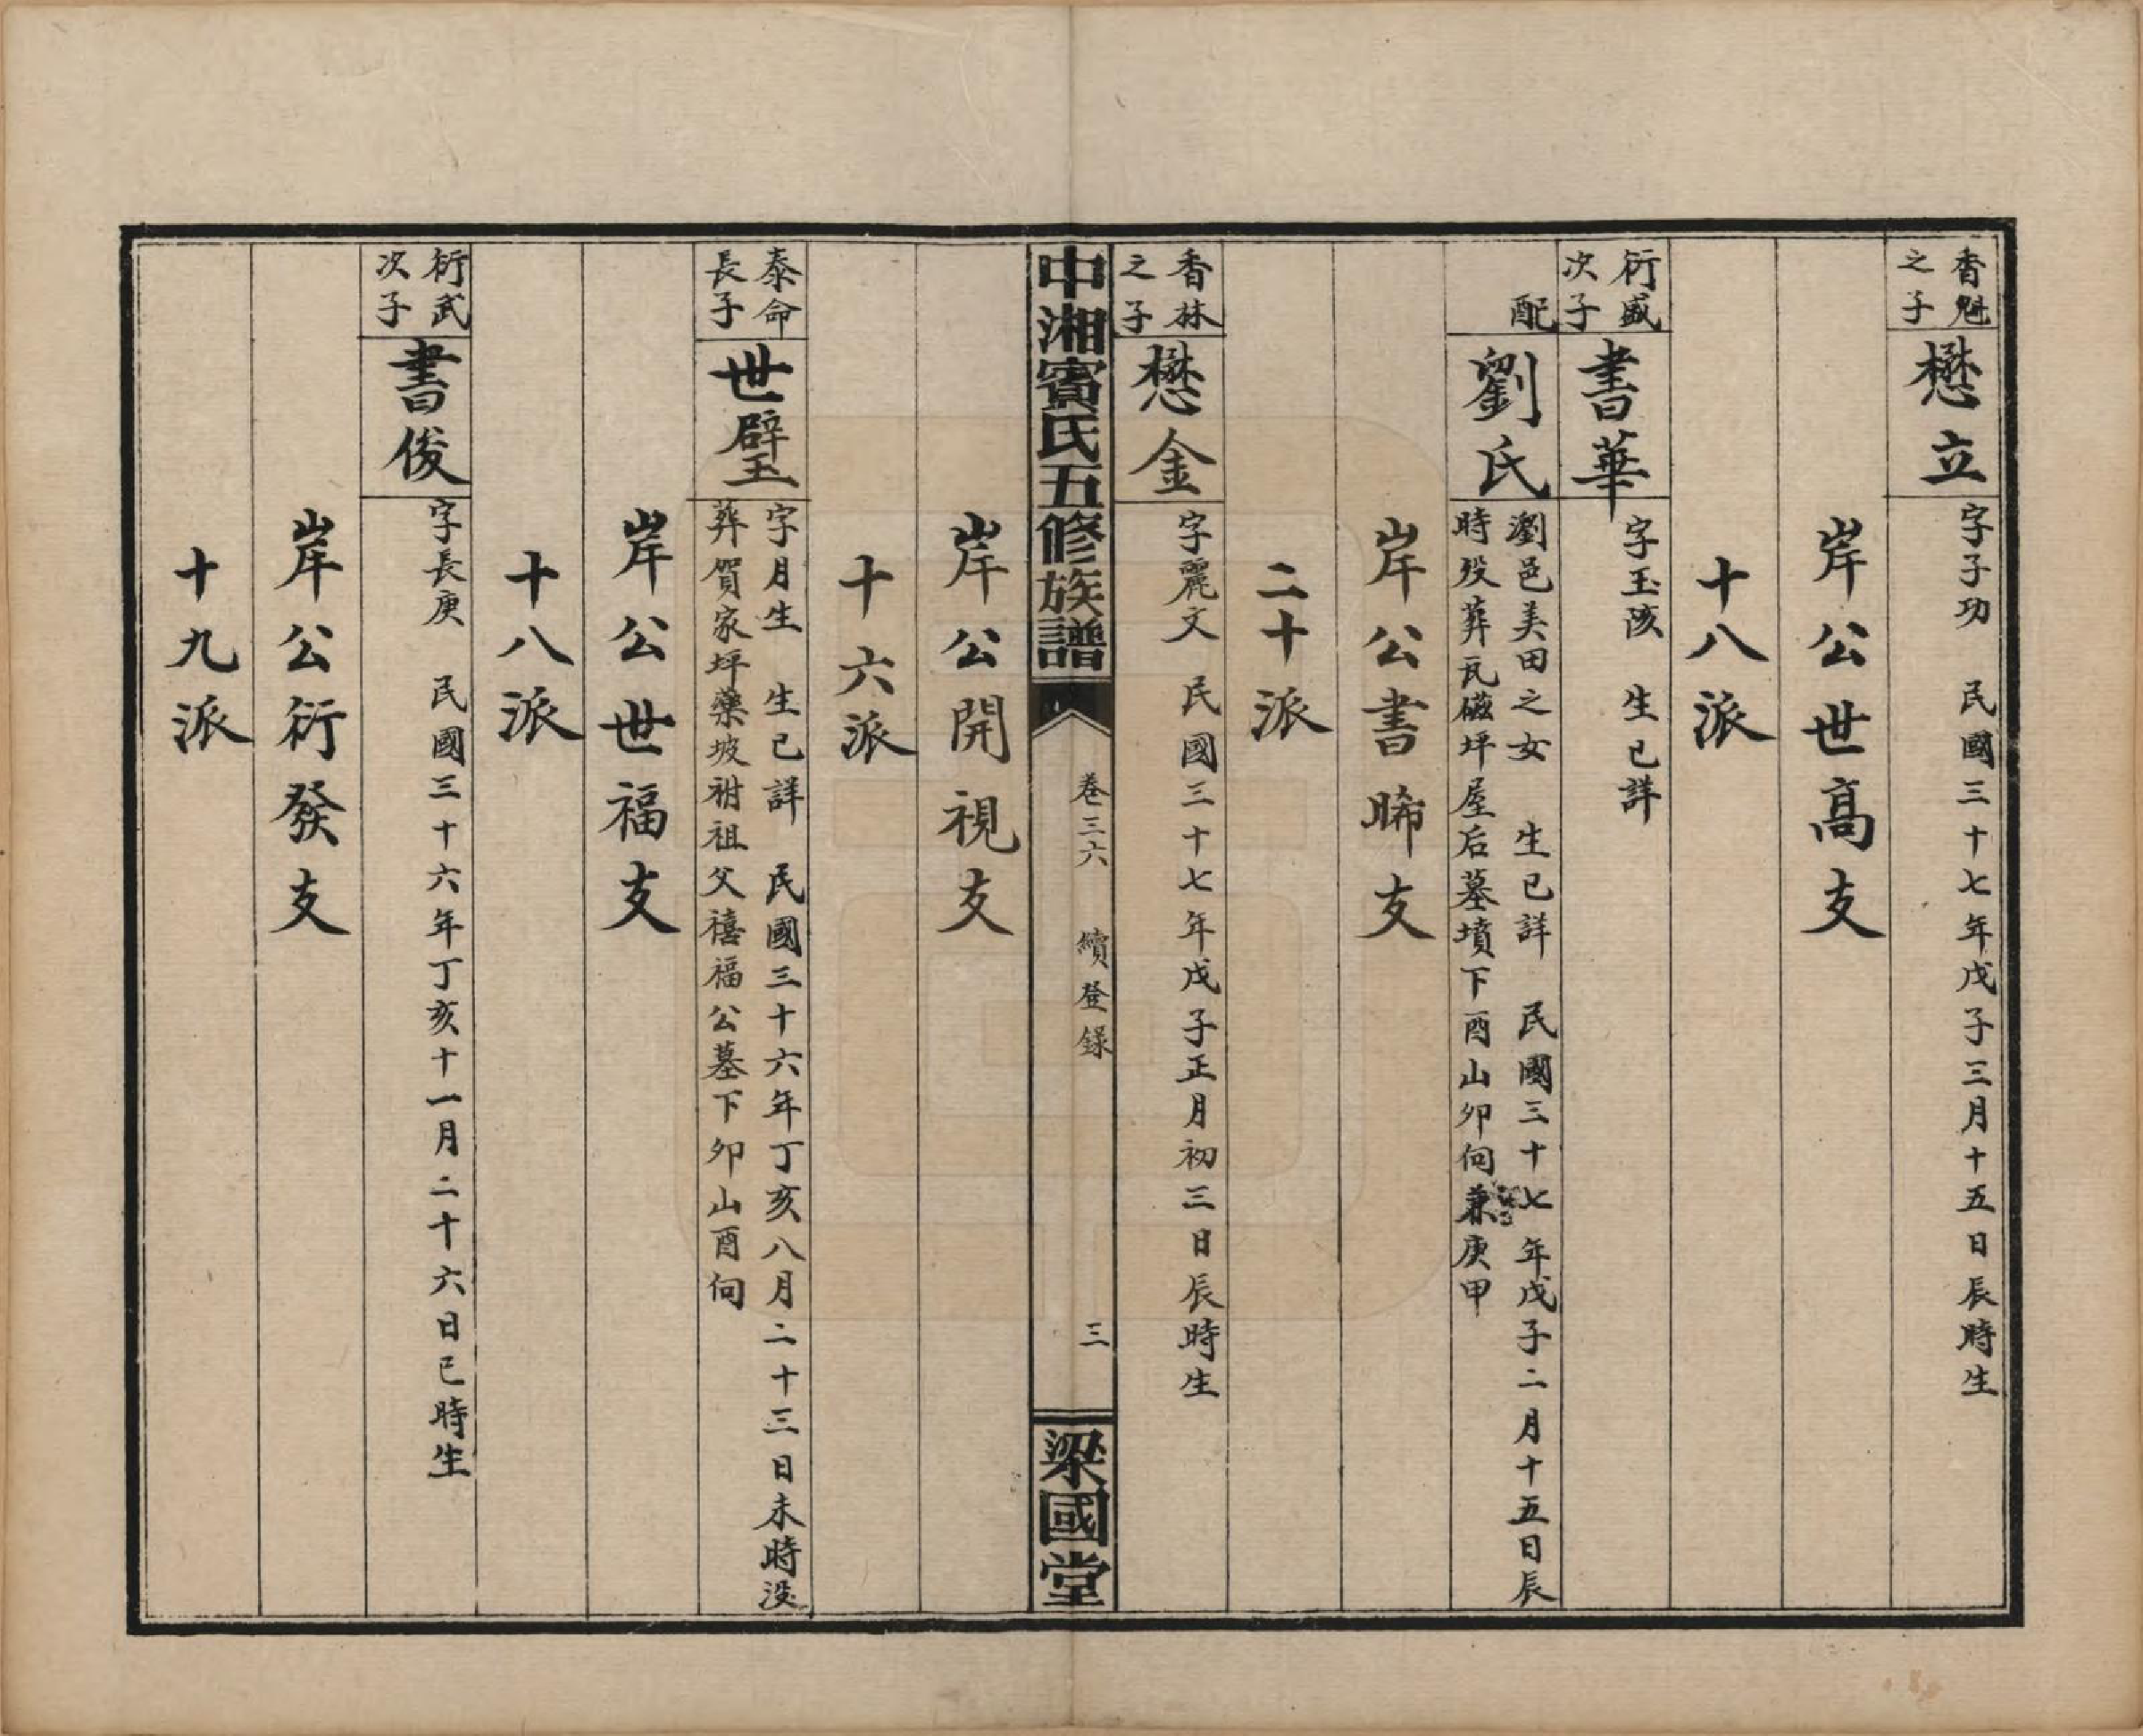 香魁
之子
懋立
字子功　民國三十七年戊子三月十五日辰時生
岸公世高支
十八派
衍盛
次子
書華
字玉陔　生已詳
配
劉氏
瀏邑美田之女　生已詳　民國三十七年戊子二月十五日辰
時歿葬瓦磁坪屋后墓墳下酉山卯向兼庚甲
岸公書晞支
二十派
香林
之子
懋金
字麗文　民國三十七年戊子正月初三日辰時生
中湘賓氏五修族譜
卷三六　續登錄　三
梁國堂
岸公開視支
十六派
泰命
長子
世璧
字月生　生已詳　民國三十六年丁亥八月二十三日未時沒
葬賀家坪藥坡祔祖父禧福公墓下卯山酉向
岸公世福支
十八派
衍武
次子
書俊
字長庚　民國三十六年丁亥十一月二十六日巳時生
岸公衍發支
十九派